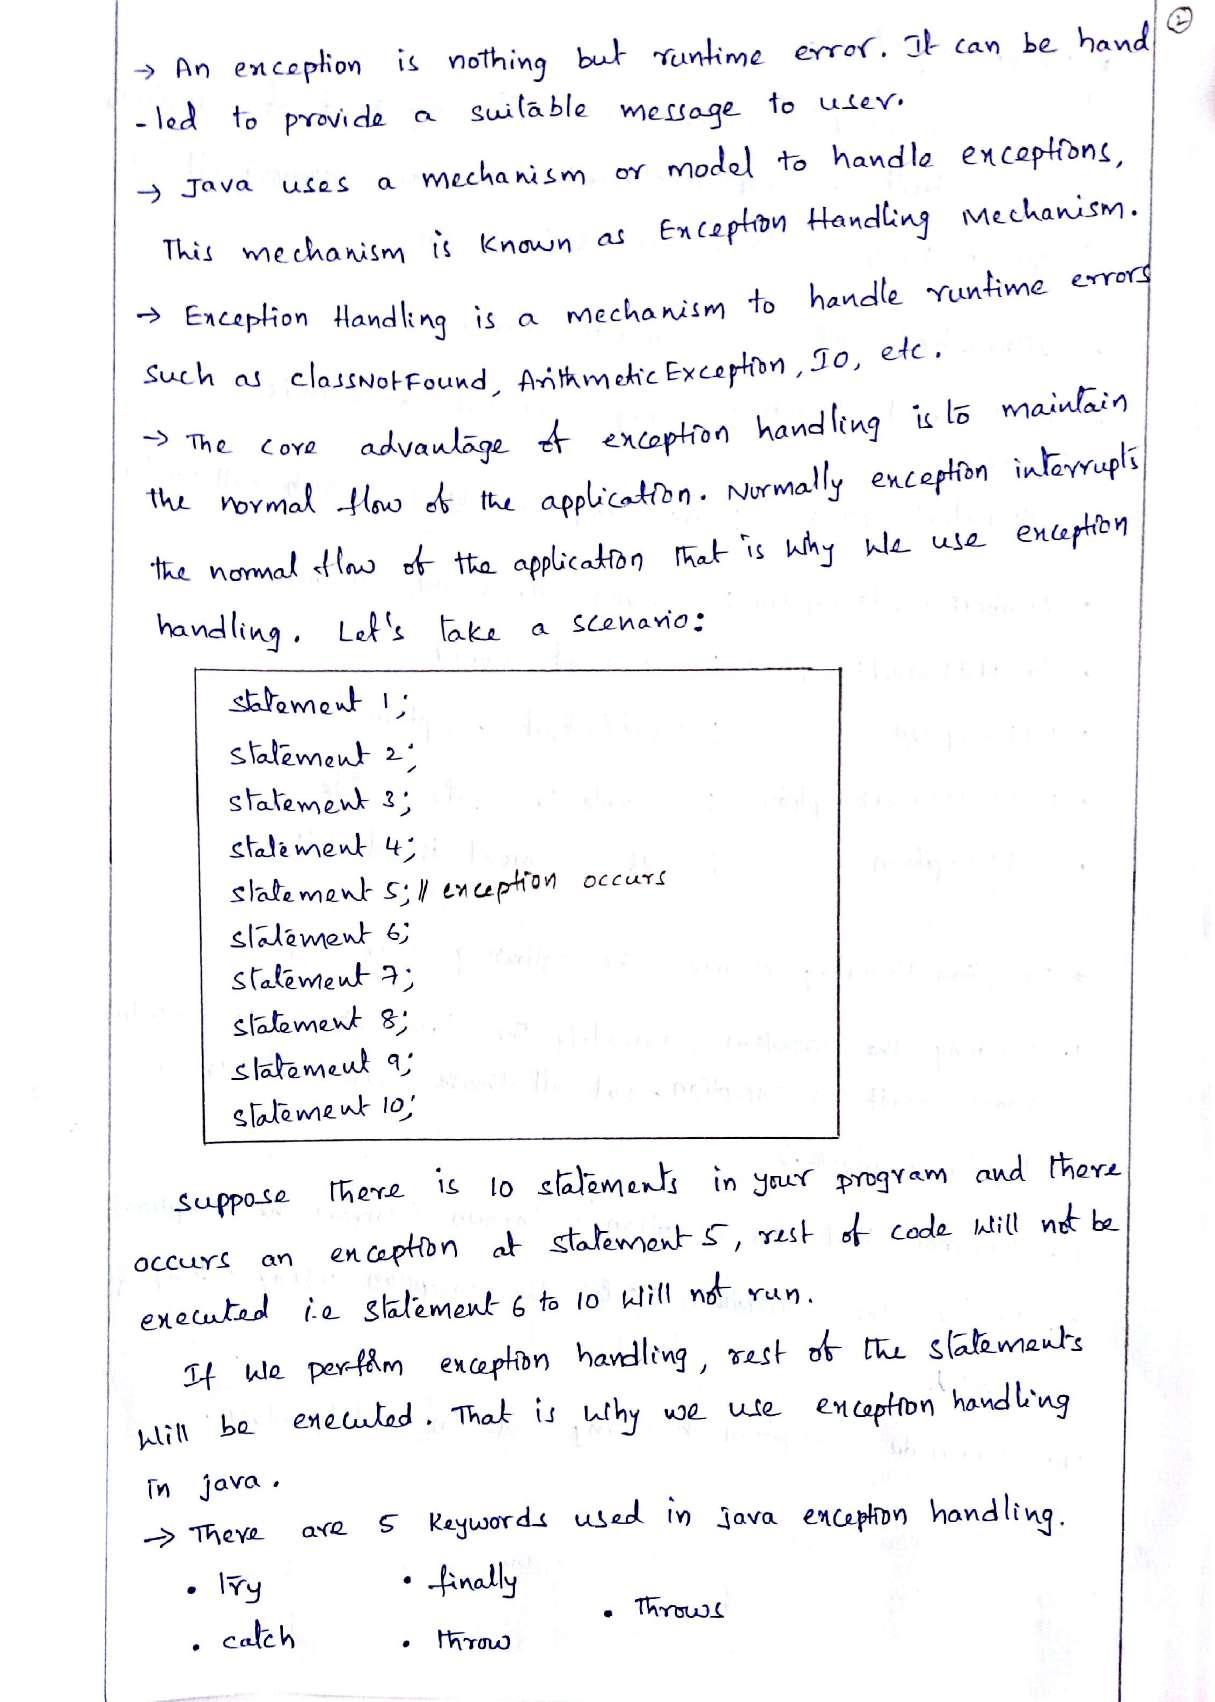 2
→ An exception is nothing but runtime error. It can be hand
-led to provide a suitable message to user.
→ Java uses a mechanism or model to handle exceptions,
This mechanism is known as Exception Handling Mechanism.
→ Exception Handling is a mechanism to handle runtime errors
such as classNotFound, ArithmeticException, IO, etc.
→ The core advantage of exception handling is to maintain
the normal flow of the application. Normally exception interrupts
the normal flow of the application that is why we use exception
handling. Let's take a scenario:
statement 1;
statement 2;
statement 3;
statement 4;
statement 5; // exception occurs
statement 6;
statement 7;
statement 8;
statement 9;
statement 10;
suppose there is 10 statements in your program and there
occurs an exception at statement 5, rest of code will not be
executed i.e statement 6 to 10 will not run.
If we perform exception handling, rest of the statements
will be executed. That is why we use exception handling
in java.
→ There are 5 keywords used in java exception handling.
• try • finally
• throws
• catch • throw